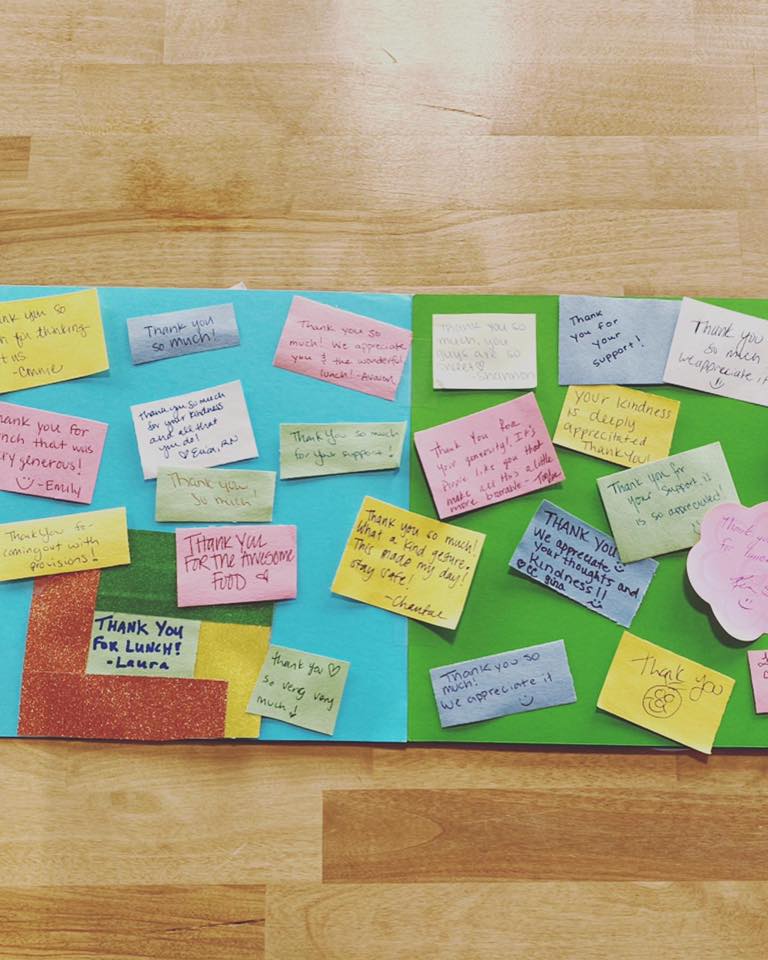 nk you so
h for thinking
t us
-Connie
Thank you
so much!
Thank you so
much! We appreciate
you & the wonderful
lunch! -Avalon
hank you for
nch that was
ry generous!
-Emily
Thank you so much
for your kindness
and all that
you do!
RN
Thank you so much
for your support!
Thank you
so much!
Thank you for
coming out with
provisions!
THANK YOU
FOR THE AWESOME
FOOD
THANK YOU
FOR LUNCH!
-Laura
thank you
so very very
much!
Thank you so much!
What a kind gesture.
This made my day!
Stay safe!
-Chantal
Thank you so
much, you
guys are so
sweet
-Shannon
Thank
you for
your
support!
Thank you
so much
we appreciate it
Thank you for
your generosity! It's
people like you that
make all this a little
more bearable -
Your kindness
is deeply
appreciated
Thank you!
Thank you for
your support it
is so appreciated!
THANK YOU
We appreciate
your thoughts and
kindness!!
gina
Thank you so
much!
we appreciate it
Thank you